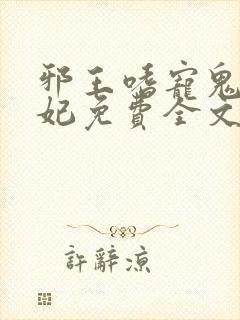 邪王嗜寵鬼
妃免費全文
許辭涼